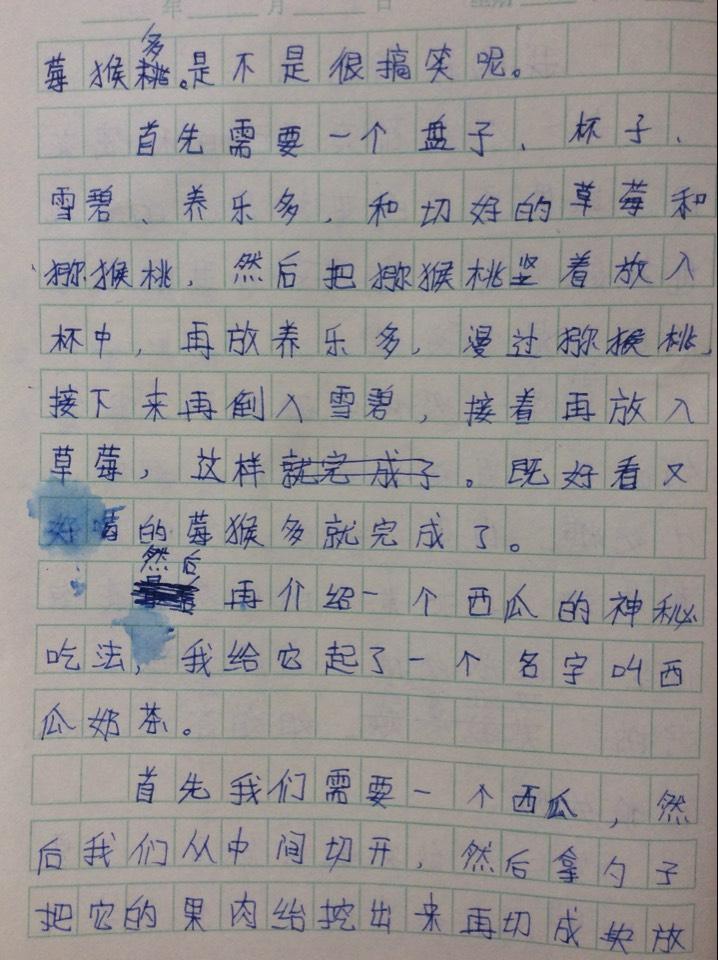 年 月 日 星期
莓猴多。是不是很搞笑呢。
首先需要一个盘子、杯子、
雪碧、养乐多，和切好的草莓和
猕猴桃，然后把猕猴桃坚着放入
杯中，再放养乐多，漫过猕猴桃，
接下来再倒入雪碧，接着再放入
草莓，这样就完成了。既好看又
好喝的莓猴多就完成了。
然后再介绍一个西瓜的神秘
吃法，我给它起了一个名字叫西
瓜奶茶。
首先我们需要一个西瓜，然
后我们从中间切开，然后拿勺子
把它的果肉给挖出来再切成块放